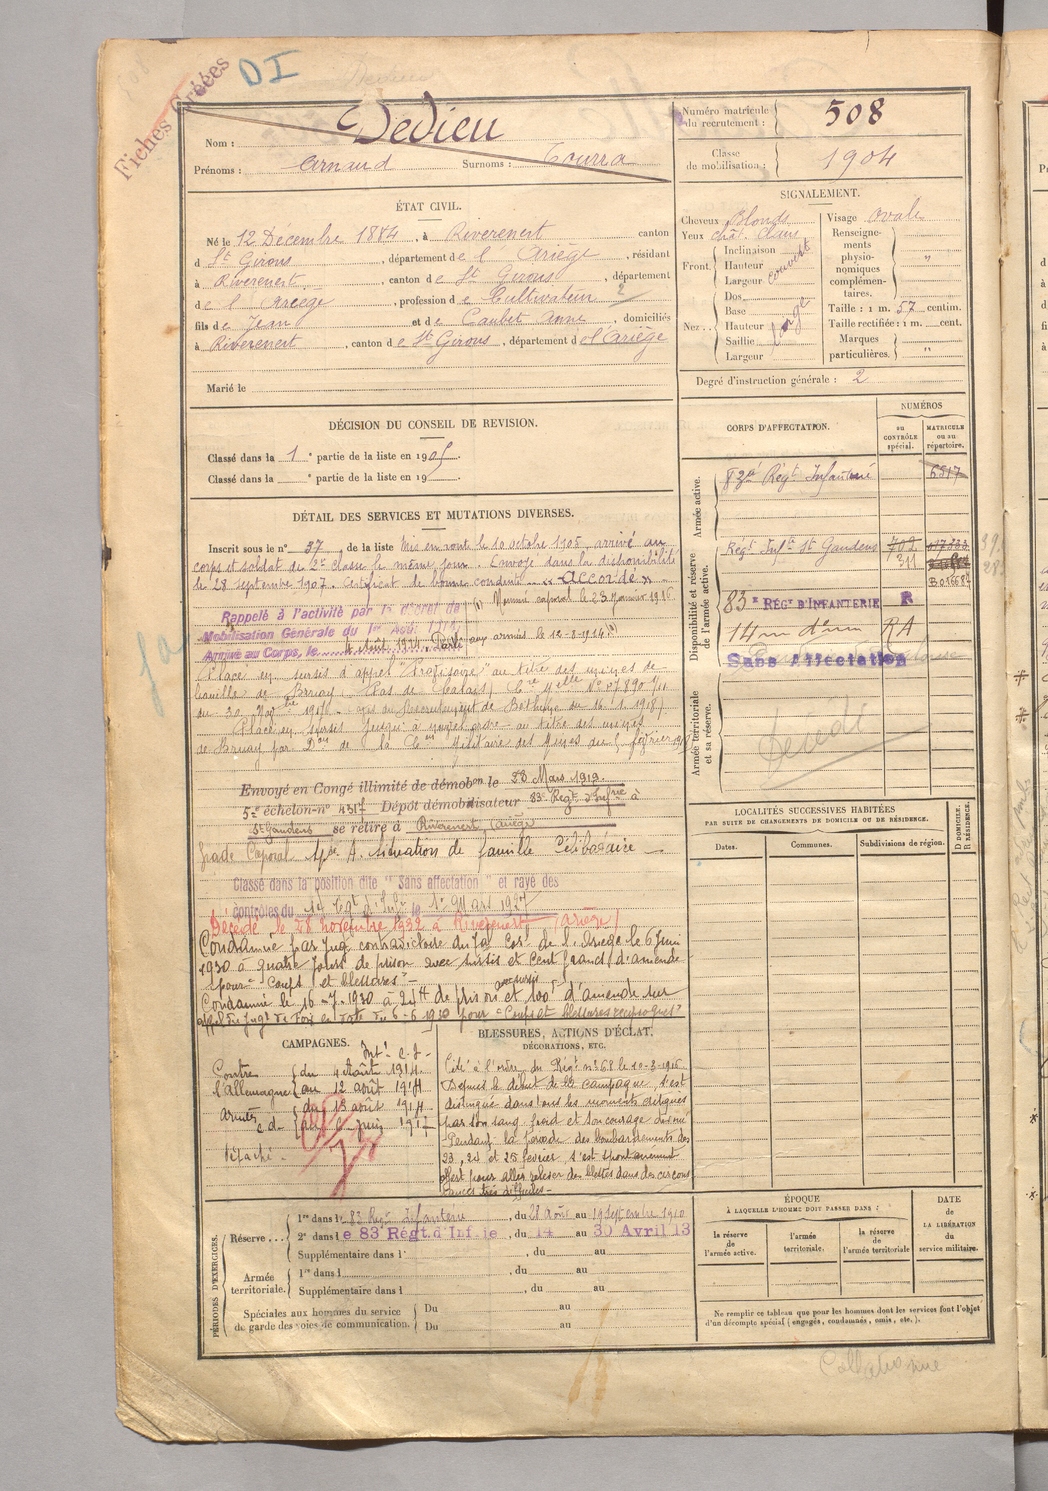 Fiches Créées
DI
Nom : Dedieu
Prénoms : Arnaud Surnoms : Tourra
Numéro matricule du recrutement : 508
Classe de mobilisation : 1904
ÉTAT CIVIL.
Né le 12 Décembre 1884, à Riverenert canton
d St Girons, département de l'Ariège, résidant
à Riverenert, canton de St Girons, département
de l'Ariège, profession de Cultivateur 2
fils de Jean et de Caubet Anne, domiciliés
à Riverenert, canton de St Girons, département de l'Ariège
Marié le
SIGNALEMENT.
Cheveux Blonds
Yeux chât. Clairs
Front. Inclinaison
Hauteur
Largeur
couvert
Nez. Dos
Base
Hauteur
Saillie
Largeur
large
Visage Ovale
Renseignements physionomiques complémentaires. "
Taille : 1 m. 57 centim.
Taille rectifiée : 1 m. cent.
Marques particulières. "
Degré d'instruction générale : 2
DÉCISION DU CONSEIL DE REVISION.
Classé dans la 1e partie de la liste en 1905.
Classé dans la e partie de la liste en 19 .
CORPS D'AFFECTATION.
NUMÉROS
au CONTRÔLE spécial.
MATRICULE ou au répertoire.
Armée active.
83e Régt Infanterie 6517
Disponibilité et réserve de l'armée active.
Régt Infie St Gaudens 702
311
B.01668
83e RÉGT D'INFANTERIE R
14me d'm RA
Sans Affectation
Armée territoriale et sa réserve.
DÉTAIL DES SERVICES ET MUTATIONS DIVERSES.
Inscrit sous le n° 37 de la liste Mis en route le 10 octobre 1905, arrivé au
corps et soldat de 2e classe le même jour. Envoyé dans la disponibilité
le 28 septembre 1907. Certificat de bonne conduite "Accordé"
Rappelé à l'activité par le décret de (1) Nommé caporal le 23 Janvier 1916
Mobilisation Générale du 1er Août 1914
Arrivé au Corps, le 4 Août 1914. Parti aux armées le 12-8-1914 (1)
Placé en sursis d'appel au titre des mines de
houille de Bruay (Pas de Calais)
Placé en sursis jusqu'à nouvel ordre au titre des mines
de Bruay par Don de la Con Militaire des Mines du février
Envoyé en Congé illimité de démobon le 23 Mars 1919.
5e échelon n° 4317 Dépôt démobilisateur 83e Régt d'Infrie à
St Gaudens se retire à Riverenert, (Ariège)
Grade Caporal Spte A. situation de famille Célibataire
Classé dans la position dite "Sans affectation" et rayé des
contrôles du 14e Rgt d'Infie le 1er Mars 1927
Décédé le 28 novembre 1932 à Riverenert (Ariège)
Condamné par Jugt contradictoire du Tal Corl de l'Ariège le 6 Juin
1930 à quatre jours de prison avec sursis et cent francs d'amende
pour "Coups et blessures"
Condamné le 16-7-1930 à 24H de prison avec sursis et 100f d'amende sur
appel du Jugt de Foix en date du 6-6 1930 pour "Coups et blessures réciproques"
LOCALITÉS SUCCESSIVES HABITÉES
PAR SUITE DE CHANGEMENTS DE DOMICILE OU DE RÉSIDENCE.
Dates.
Communes.
Subdivisions de région.
D DOMICILE. R RÉSIDENCE.
CAMPAGNES.
Int. C.S.
Contre l'Allemagne du 4 Août 1914
au 12 août 1914
Armées du 13 août 1914
au 6 juin 1917
Détaché
BLESSURES, ACTIONS D'ÉCLAT.
DÉCORATIONS, ETC.
Cité à l'ordre du Régt n° 68 le 10-3-1916
Depuis le début de la campagne, s'est
distingué dans tous les moments critiques
par son sang froid et son courage
Pendant la période des bombardements des
23, 24 et 25 février, s'est spontanément
offert pour aller relever des blessés dans des circons
tances très difficiles
PÉRIODES D'EXERCICES.
Réserve. 1re dans le 83 Régt Infanterie, du 28 Août au 19 Septembre 1910
2e dans le 83 Régt. d'Inf. ie, du 14 au 30 Avril 13
Supplémentaire dans l , du au
Armée territoriale. 1re dans l , du au
Supplémentaire dans l , du au
Spéciales aux hommes du service de garde des voies de communication. Du au
Du au
ÉPOQUE
À LAQUELLE L'HOMME DOIT PASSER DANS :
la réserve de l'armée active.
l'armée territoriale.
la réserve de l'armée territoriale
DATE DE LA LIBÉRATION du service militaire.
Ne remplir ce tableau que pour les hommes dont les services font l'objet
d'un décompte spécial (engagés, condamnés, omis, etc.).
Collationné